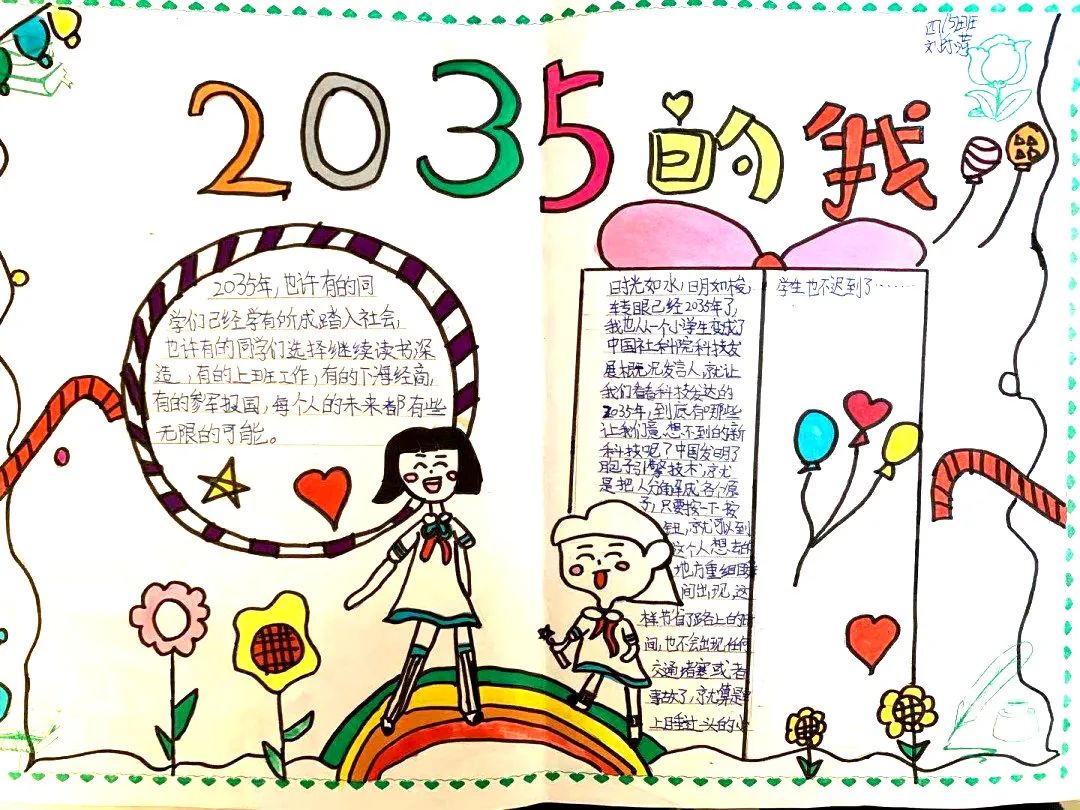 四/5班
2035的我
2035年,也许有的同
学们已经学有所成踏入社会,
也许有的同学们选择继续读书深
造,有的上班工作,有的下海经商,
有的参军报国,每个人的未来都有些
无限的可能。
时光如水,日月如梭,
转眼已经2035年了,
我也从一个小学生变成了
中国社科院科技发
展概况发言人,就让
我们看看科技发达的
2035年,到底有哪些
让我们意想不到的新
科技呢?中国发明了
胞子引擎技术,就
是把人分解成各个原
子,只要按一下按
钮,就可以到
这个人想去的
地方重组
间出现,这
样节省了路上的时
间,也不会出现任何
交通堵塞或者
事故了,就算是
上班
学生也不迟到了……